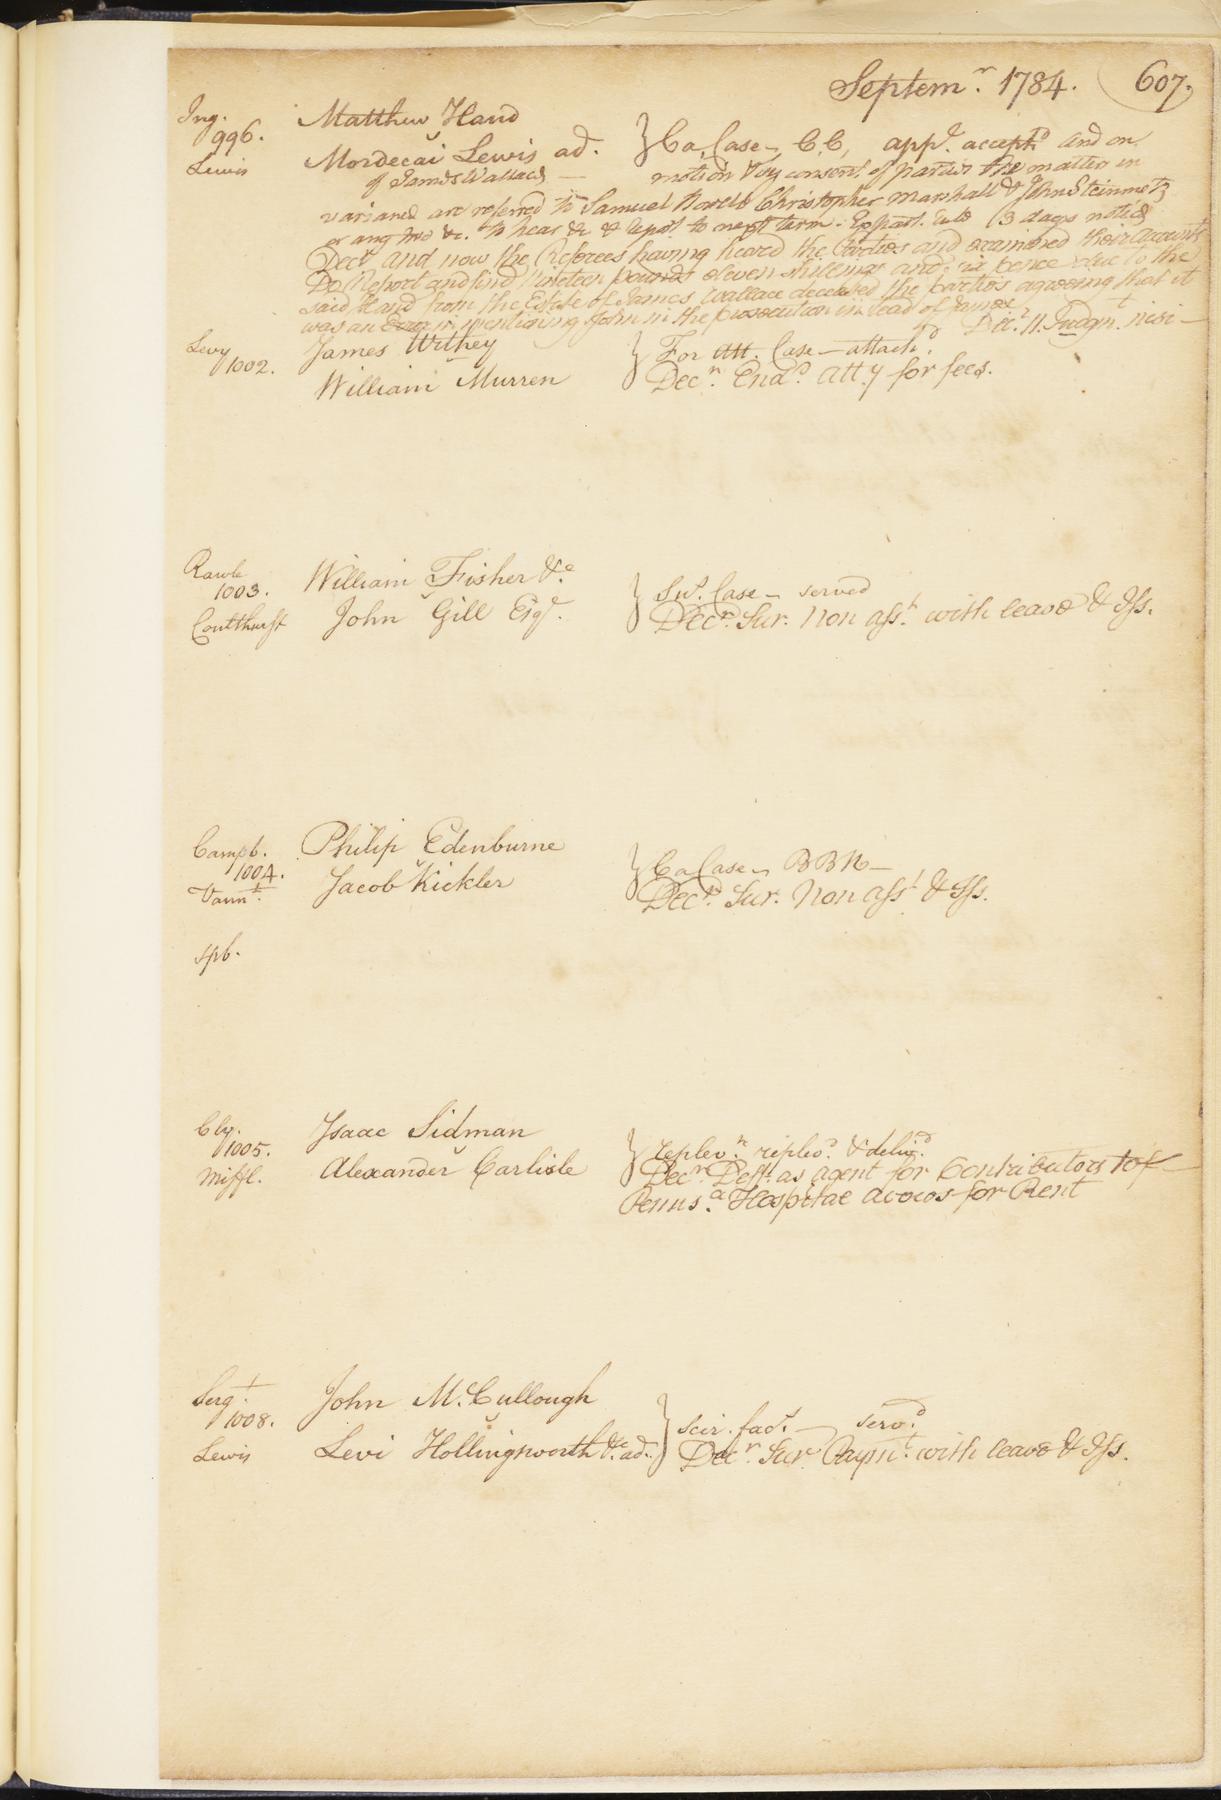 Septemr. 1784. 607.
Ing. Matthew Hand
996.
Lewis Mordecai Lewis ad. } Ca. Case – C.C, appe. acceptd and on
of James Wallace – motion & by consent of parties the matters in
variance are referred to Samuel Howell Christopher Marshall & John Steinmetz
or any two &c. to hear &c & Report to next term. Expart. rule (3 days notice
Decr. and now the Referees having heard the Parties and examined their accounts
Do Report and find Nineteen pounds eleven shillings and six pence due to the
said Hand from the Estate of James Wallace deceased the parties agreeing that it
was an Error in mentioning John in the prosecution in lead of James Decr. 11. Judgmt. nisi –
Levy James Withey } For Att. Case – attachd.
1002.
William Murren Decn. Endd. atty for fees.
Rawle William Fisher &c.
1003. } Sus. Case – served
Coulthurst John Gill Esqr. Decr. Sur. Non asst. with leave & Iss.
Campb. Philip Edenburne
1004. } Ca Case – BBN –
Vannt. Jacob Kickler Decn. Sur. Non asst & Iss.
spb.
Cly. Isaac Sidman
1005. } replevn. replevd. & delivd.
Miffl. Alexander Carlisle Decn. Deft. as agent for Contributors to
Pennsa. Hospital avows for Rent
Sergt. John McCullough
1008. } Scir. facs. – servd.
Lewis Levi Hollingsworth &c ad. Decr. Sur Paymt. with leave & Iss.